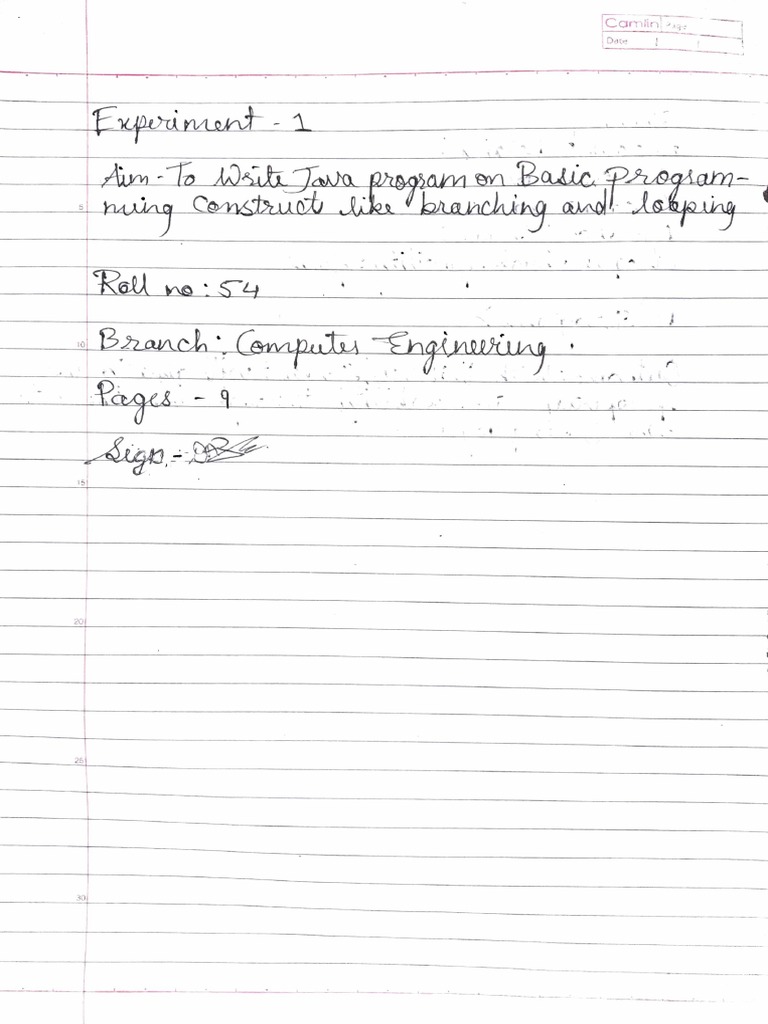 Camlin Page
Date / /
Experiment - 1
Aim - To Write Java program on Basic Program-
ming construct like branching and looping
5
Roll no : 54
10
Branch : Computer Engineering .
Pages - 9
Sign. -
15
20
25
30